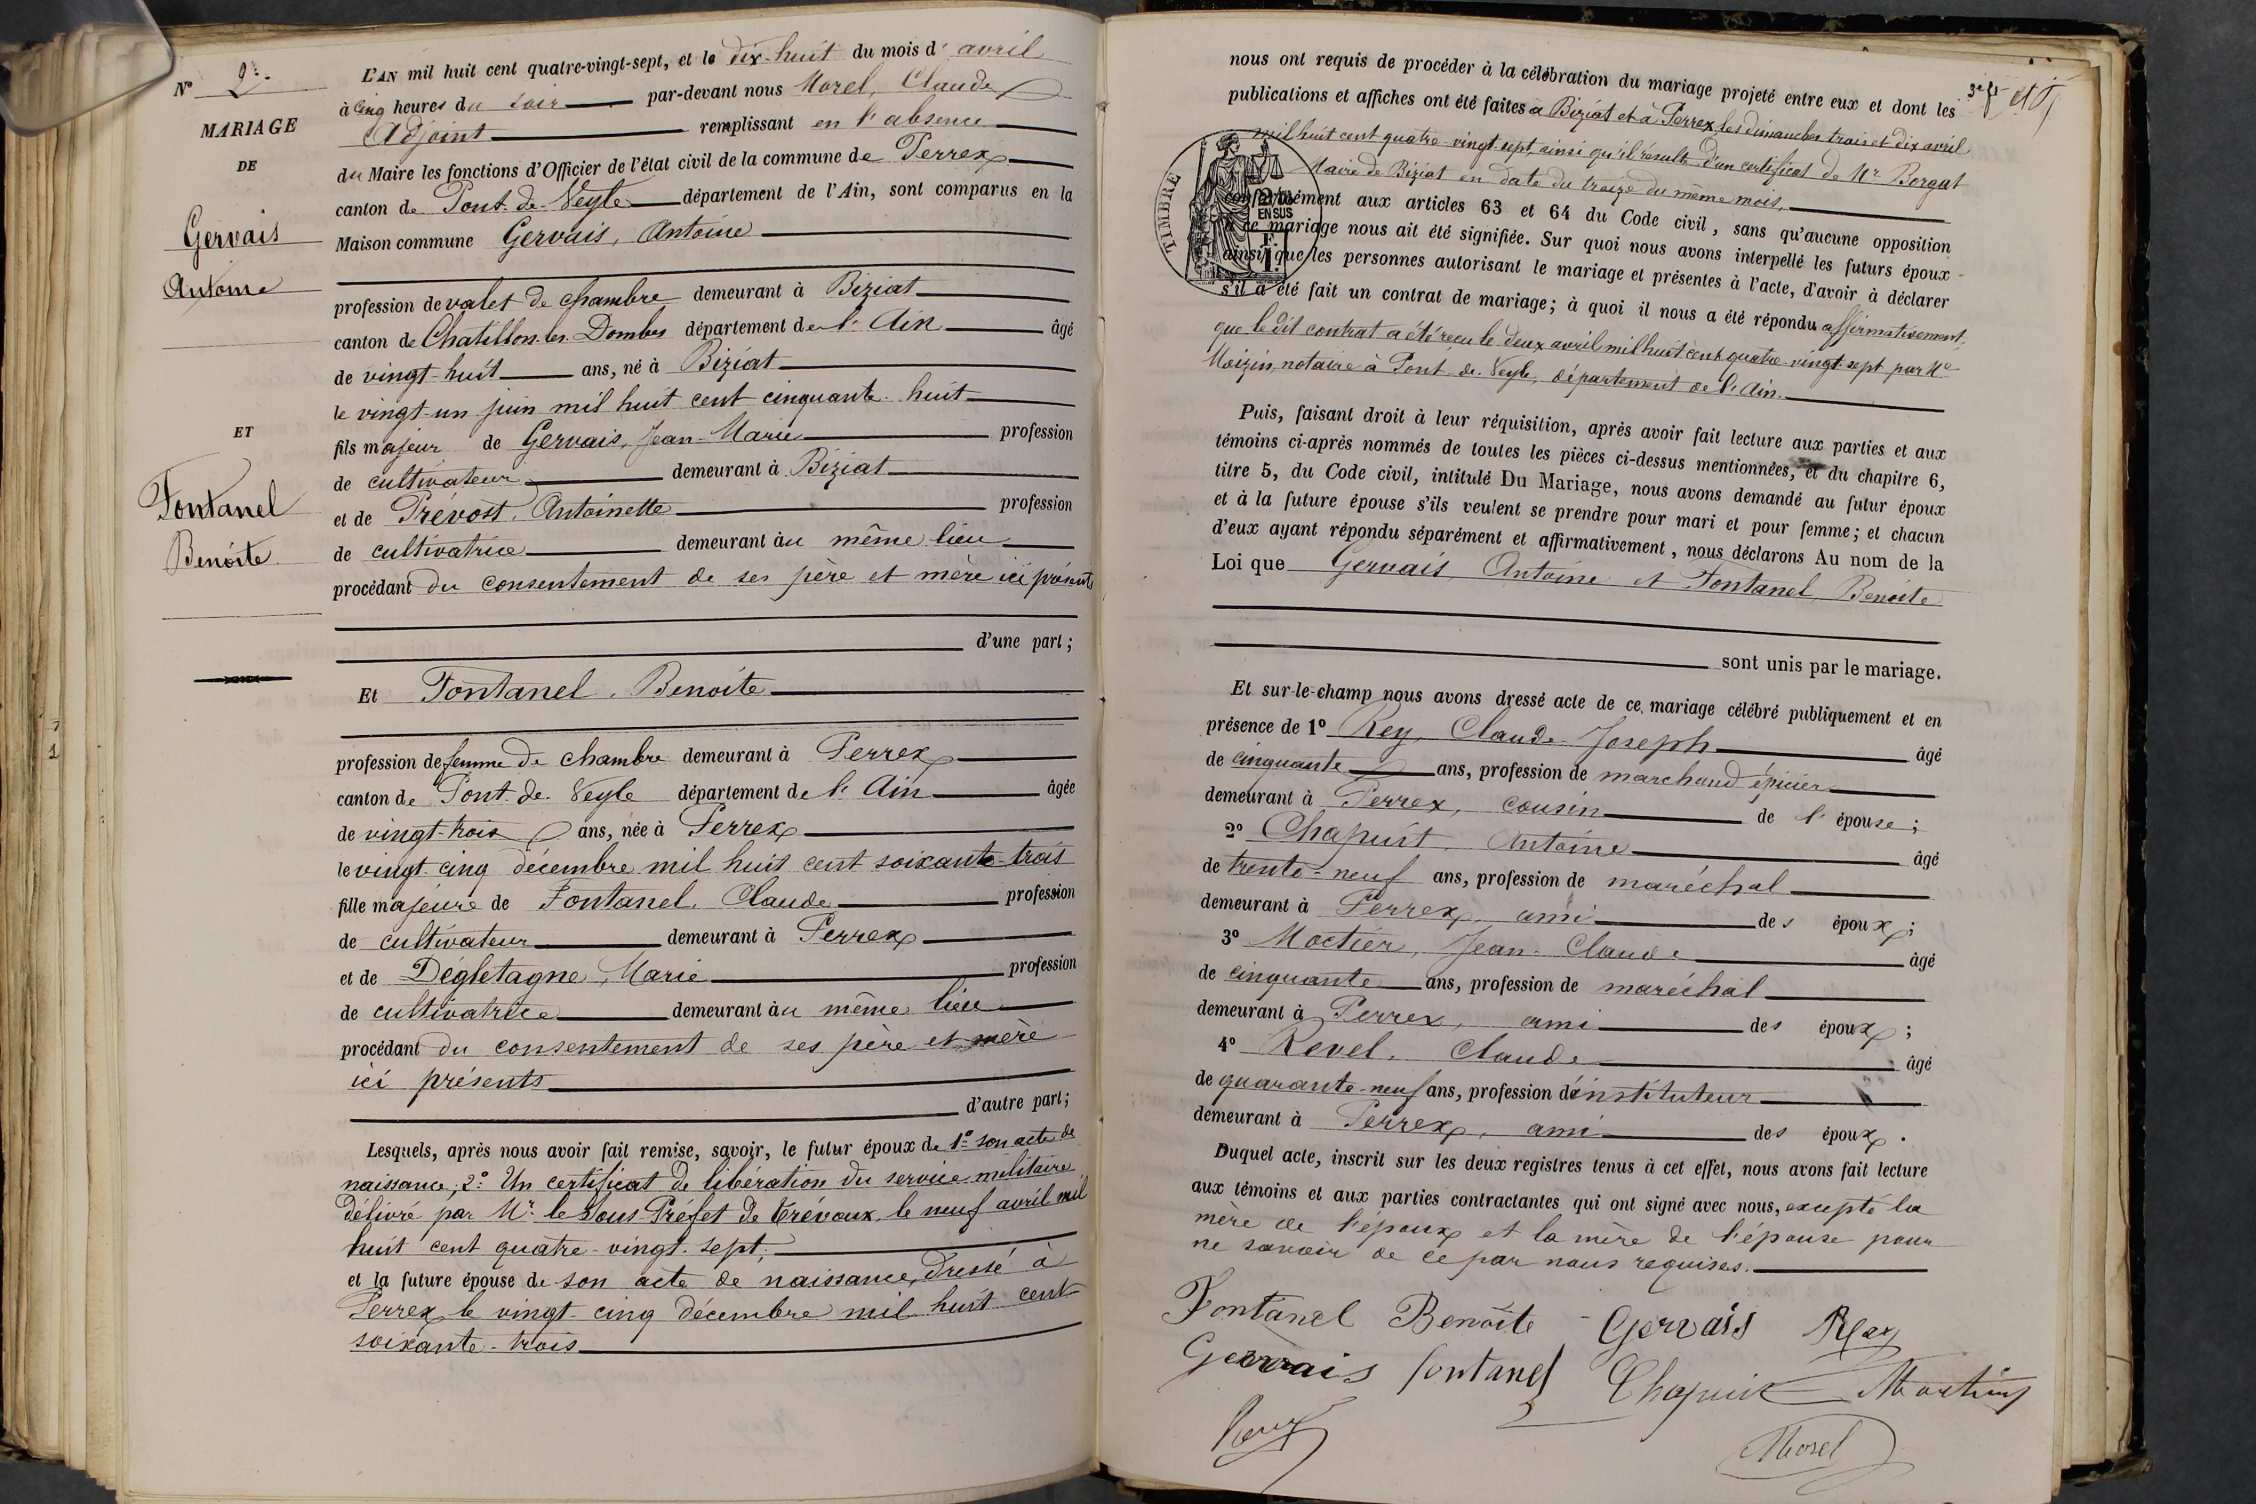 N° 2
MARIAGE
DE
Gervais
Antoine
ET
Fontanel
Benoite
L'AN mil huit cent quatre-vingt-sept, et le dix-huit du mois d'avril
à cinq heures du soir par-devant nous Morel, Claude
Adjoint remplissant en l'absence
du Maire les fonctions d'Officier de l'état civil de la commune de Perrex
canton de Pont-de-Veyle département de l'Ain, sont comparus en la
Maison commune Gervais, Antoine
profession de valet de chambre demeurant à Biziat
canton de Chatillon-les-Dombes département de l'Ain âgé
de vingt-huit ans, né à Biziat
le vingt-un juin mil huit cent cinquante-huit
fils majeur de Gervais, Jean-Marie profession
de cultivateur demeurant à Biziat
et de Prévost, Antoinette profession
de cultivatrice demeurant àu même lieu
procédant du consentement de ses père et mère ici présents
d'une part ;
Et Fontanel, Benoite
profession de femme de chambre demeurant à Perrex
canton de Pont-de-Veyle département de l'Ain âgée
de vingt-trois ans, née à Perrex
le vingt-cinq décembre mil huit cent soixante-trois
fille majeure de Fontanel, Claude profession
de cultivateur demeurant à Perrex
et de Dégletagne, Marie profession
de cultivatrice demeurant àu même lieu
procédant du consentement de ses père et mère
ici présents
d'autre part ;
Lesquels, après nous avoir fait remise, savoir, le futur époux de 1° son acte de
naissance ; 2° Un certificat de libération du service militaire
délivré par Mr le Sous-Préfet de Trévoux le neuf avril mil
huit cent quatre-vingt-sept ;
et la future épouse de son acte de naissance, dressé à
Perrex le vingt-cinq décembre mil huit cent
soixante-trois
3e ft
nous ont requis de procéder à la célébration du mariage projeté entre eux et dont les
publications et affiches ont été faites à Biziat et à Perrex les dimanches trois et dix avril
mil huit cent quatre-vingt-sept, ainsi qu'il résulte d'un certificat de Mr Borgat
Maire de Biziat en date du treize du même mois,
TIMBRE
2/10
EN SUS
F.
1
conformément aux articles 63 et 64 du Code civil, sans qu'aucune opposition
à ce mariage nous ait été signifiée. Sur quoi nous avons interpellé les futurs époux
ainsi que les personnes autorisant le mariage et présentes à l'acte, d'avoir à déclarer
s'il a été fait un contrat de mariage ; à quoi il nous a été répondu affirmativement,
que le dit contrat a été reçu le deux avril mil huit cent quatre-vingt-sept par Me
Moizin, notaire à Pont-de-Veyle, département de l'Ain.
Puis, faisant droit à leur réquisition, après avoir fait lecture aux parties et aux
témoins ci-après nommés de toutes les pièces ci-dessus mentionnées, et du chapitre 6,
titre 5, du Code civil, intitulé Du Mariage, nous avons demandé au futur époux
et à la future épouse s'ils veulent se prendre pour mari et pour femme ; et chacun
d'eux ayant répondu séparément et affirmativement, nous déclarons Au nom de la
Loi que Gervais, Antoine et Fontanel, Benoite
sont unis par le mariage.
Et sur-le-champ nous avons dressé acte de ce mariage célébré publiquement et en
présence de 1° Rey, Claude-Joseph âgé
de cinquante ans, profession de marchand épicier
demeurant à Perrex, cousin de l'épouse ;
2° Chapuit, Antoine âgé
de trente-neuf ans, profession de maréchal
demeurant à Perrex, ami des époux ;
3° Moctier, Jean-Claude âgé
de cinquante ans, profession de maréchal
demeurant à Perrex, ami des époux ;
4° Revel, Claude âgé
de quarante-neuf ans, profession d'instituteur
demeurant à Perrex, ami des époux.
Duquel acte, inscrit sur les deux registres tenus à cet effet, nous avons fait lecture
aux témoins et aux parties contractantes qui ont signé avec nous, excepté la
mère de l'époux et la mère de l'épouse pour
ne savoir de ce par nous requises.
Fontanel Benoite Gervais Rey
Gervais fontanel Chapuit
Morel